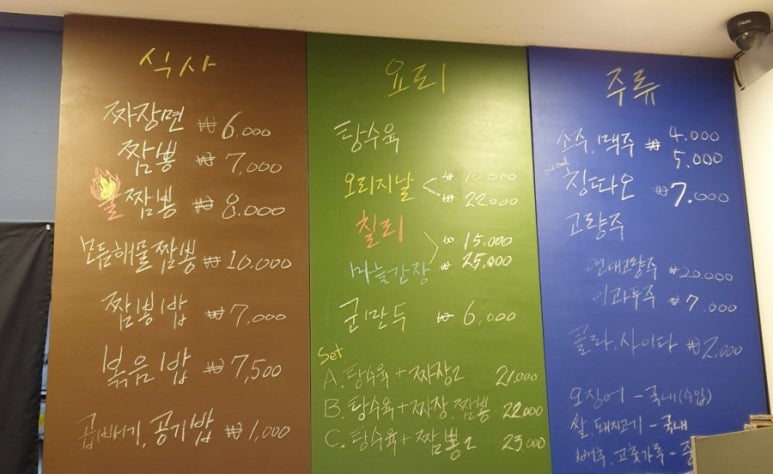 식사
짜장면 ₩6,000
짬뽕 ₩7,000
불짬뽕 ₩8,000
모듬해물짬뽕 ₩10,000
짬뽕밥 ₩7,000
볶음밥 ₩7,500
곱빼기, 공기밥 ₩1,000
요리
탕수육
오리지날
₩ 22,000
칠리
₩ 15,000
마늘간장 ₩ 25,000
군만두 ₩ 6,000
Set
A. 탕수육 + 짜장2 21,000
B. 탕수육 + 짜장, 짬뽕 22,000
C. 탕수육 + 짬뽕2 23,000
주류
소주, 맥주 ₩ 4,000
5,000
칭따오 ₩7,000
고량주
연태고량주 ₩20,000
이과두주 ₩7,000
콜라, 사이다 ₩2,000
오징어 - 국내(수입)
쌀, 돼지고기 - 국내
배추, 고춧가루 -